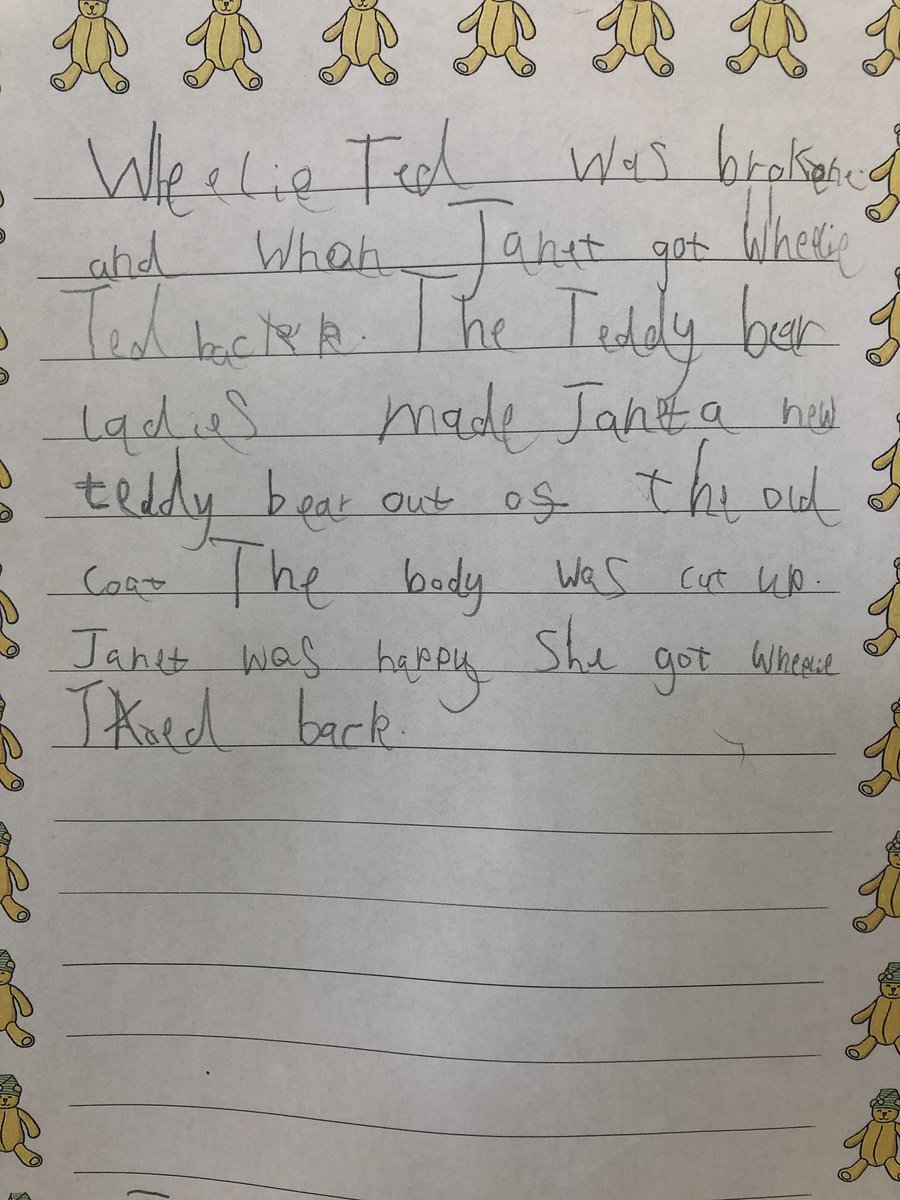 Wheelie Ted was brokene.
and Whan Janet got Wheelie
Ted back. The Teddy bear
ladies made Janet a new
teddy bear out of the old
coat The body was cut up.
Janet was happy She got wheelie
Ted back.